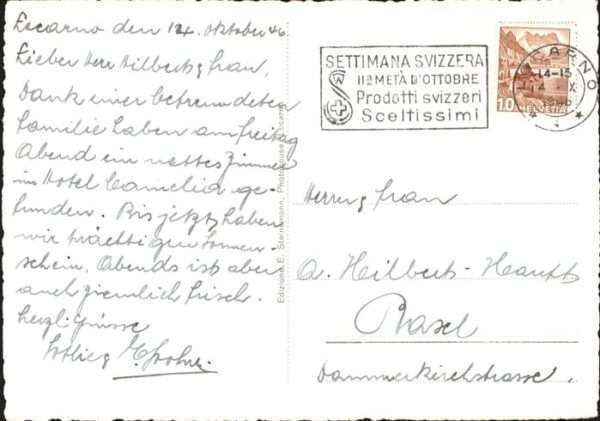 Locarno den 14. Oktober 46.
Lieber Herr Hilbert & Frau,
Dank einer befreundeten
Familie haben am Freitag
Abend ein nettes Zimmer
im Hotel Camelia ge-
funden. Bis jetzt haben
wir prächtigen Sonnen-
schein. Abends ist aber
auch ziemlich frisch.
Herzl. Grüsse
SETTIMANA SVIZZERA
IIª METÀ D'OTTOBRE
Prodotti svizzeri
Sceltissimi
LOCARNO
14-15
10 HELVETIA
Edizione E. Steinemann, Locarno
Herrn & Frau
A. Hilbert-Hauft
Basel
Dammerkirchstrasse.